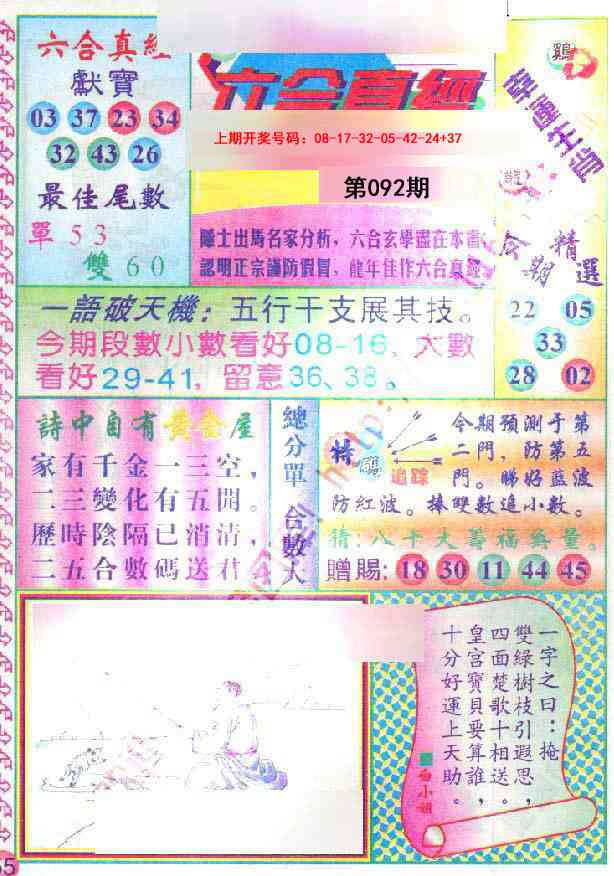 六合真經
獻寶
03 37 23 34
32 43 26
最佳尾數
單 5 3
雙 6 0
六合真經
上期开奖号码：08-17-32-05-42-24+37
第092期
隱士出馬名家分析，六合玄學盡在本
認明正宗謹防假冒，龍年佳作六合真經
鷄
幸運生肖
精選
期
22 05
33
28 02
一語破天機：五行干支展其技。
今期段數小數看好08-16，大數
看好29-41，留意36、38。
詩中自有黃金屋
家有千金一三空，
二三變化有五開。
歷時陰隔已消清，
二五合數碼送君
總分單 合數大
特碼追踪
今期預測于第
二門，防第五
門。睇好藍波
防紅波。捧雙數追小數。
猜：八十大壽福無量。
贈賜：18 30 11 44 45
一字之曰：掩
雙綠樹枝引遐思，
四面楚歌十相送。
皇宮寶貝要算誰，
十分好運上天助。
白小姐
65